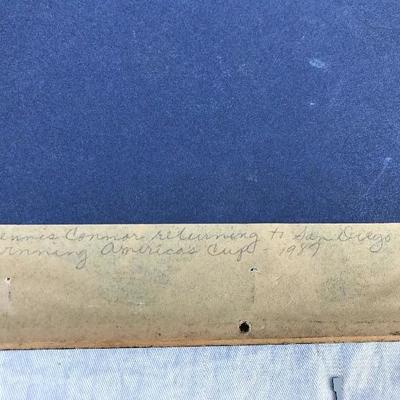 Dennis Connor returning to San Diego
winning America's Cup - 1987